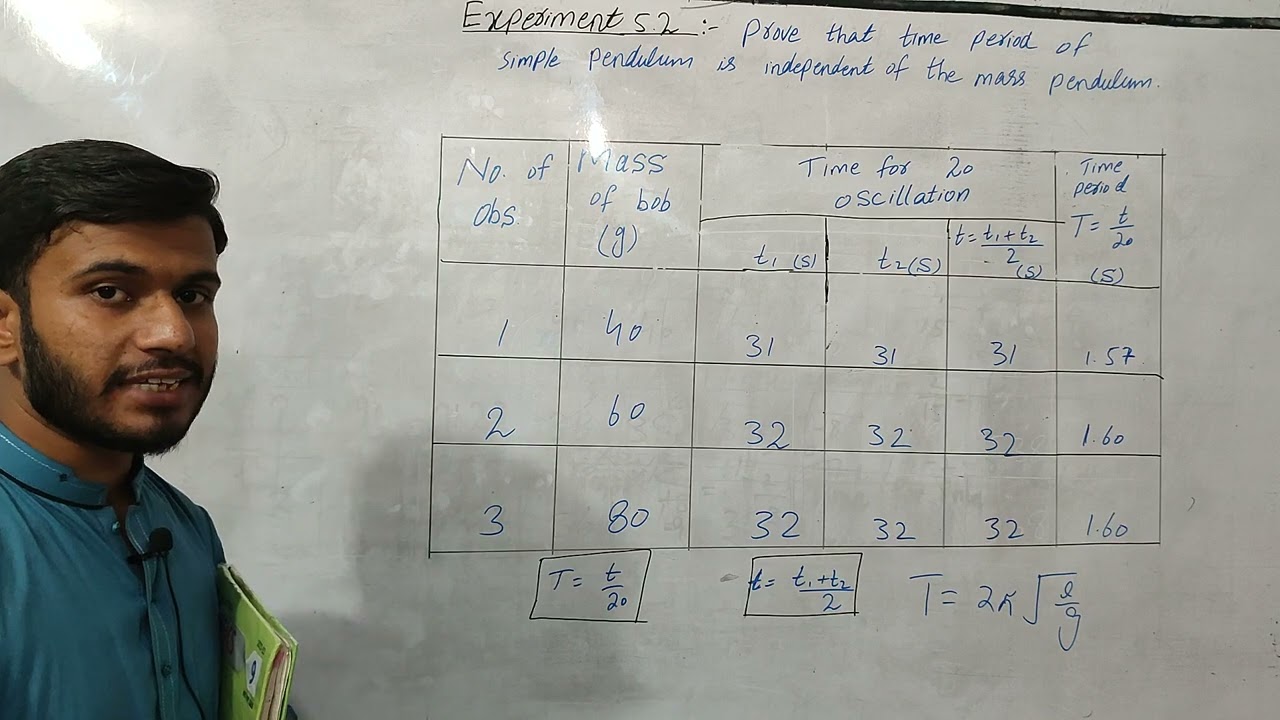 Experiment 5.2 :- Prove that time period of
simple pendulum is independent of the mass pendulum.
No. of
obs.
Mass
of bob
(g)
Time for 20
oscillation
t₁ (s)
t₂ (s)
t = t₁ + t₂ / 2 (s)
Time
period
T = t / 20
(s)
1 40 31 31 31 1.57
2 60 32 32 32 1.60
3 80 32 32 32 1.60
T = t / 20
t = t₁ + t₂ / 2
T = 2π √ l / g
9